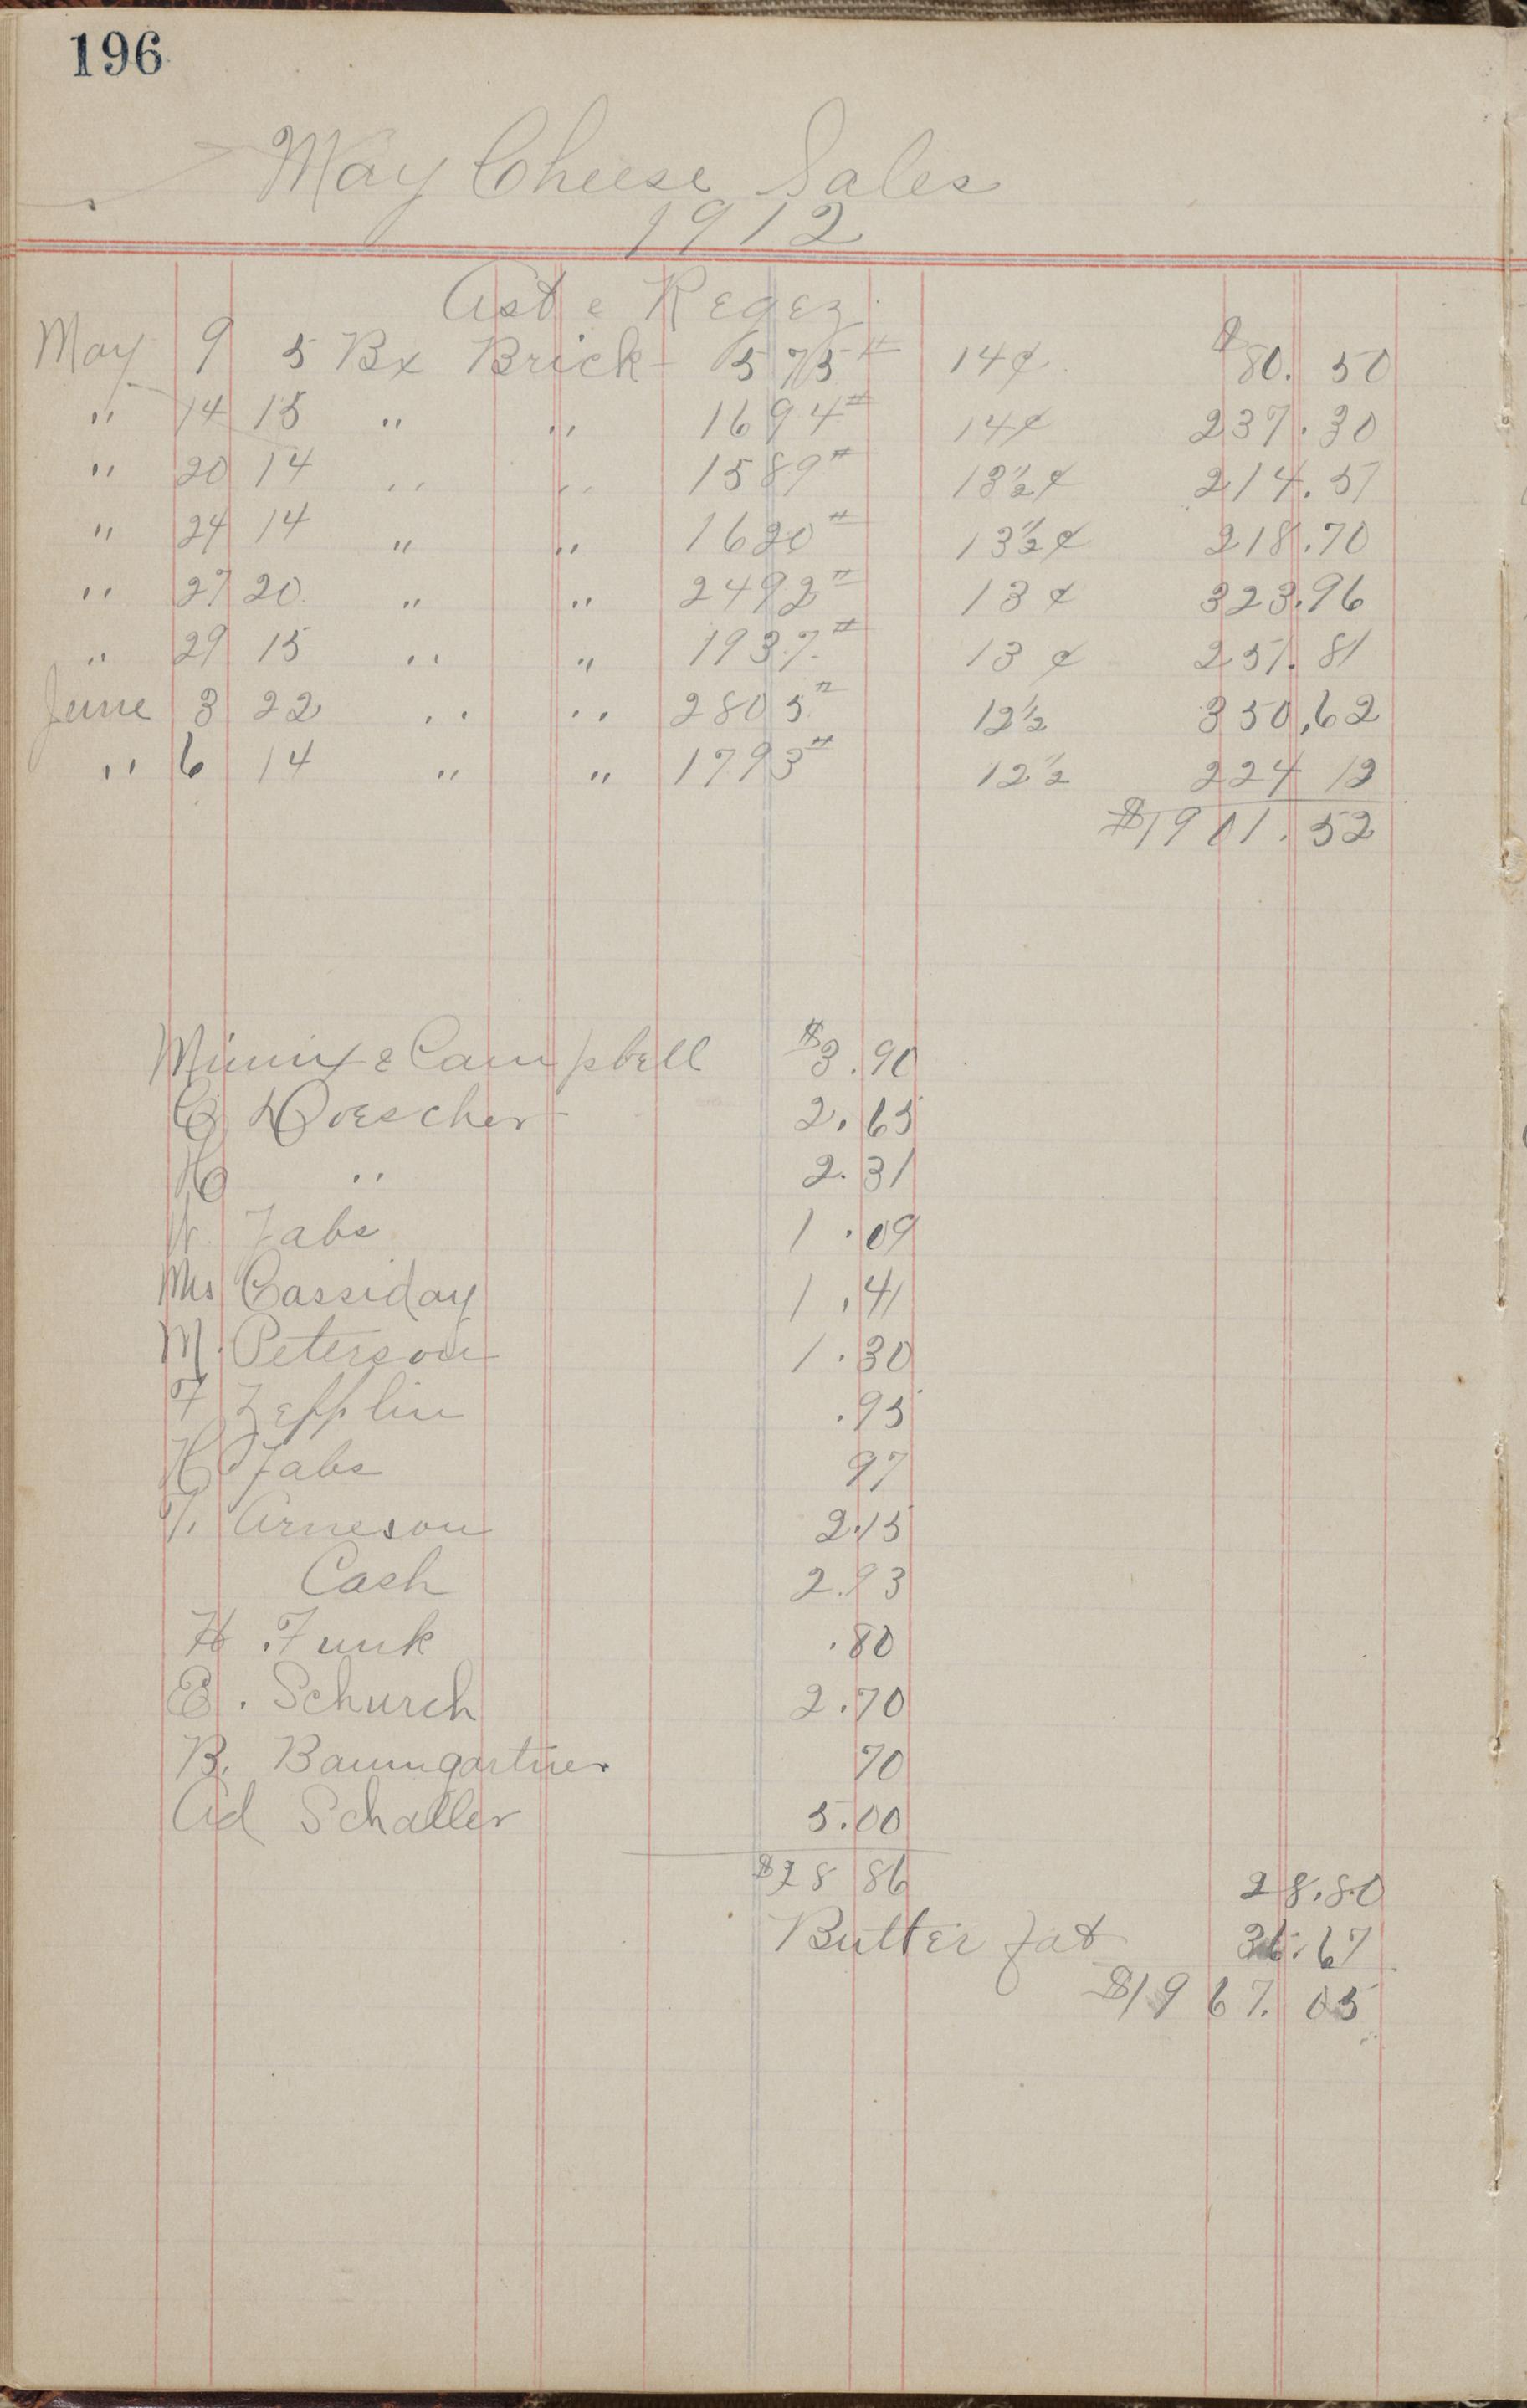 196
May Cheese Sales
1912
Ast & Regez
May 9 5 Bx Brick 575# 14¢ $80.50
" 14 15 " " 1694# 14¢ 237.30
" 20 14 " " 1589# 13½¢ 214.51
" 24 14 " " 1620# 13½¢ 218.70
" 27 20 " " 2492# 13¢ 323.96
" 29 15 " " 1937# 13¢ 251.81
June 3 22 " " 2805# 12½ 350.62
" 6 14 " " 1793# 12½ 224 12
$1901.52
& Campbell $3.90
C Doescher 2.65
H " 2.31
Jabs 1.09
Mrs Cassiday 1.41
M. Peterson 1.30
F Zepplin .95
H Jabs 97
T. Arneson 2.15
Cash 2.93
H. Funk .80
E. Schurch 2.70
B. Baumgartner 70
Ad Schaller 5.00
$28 86 28.80
Butter fat 36.67
$1967.05